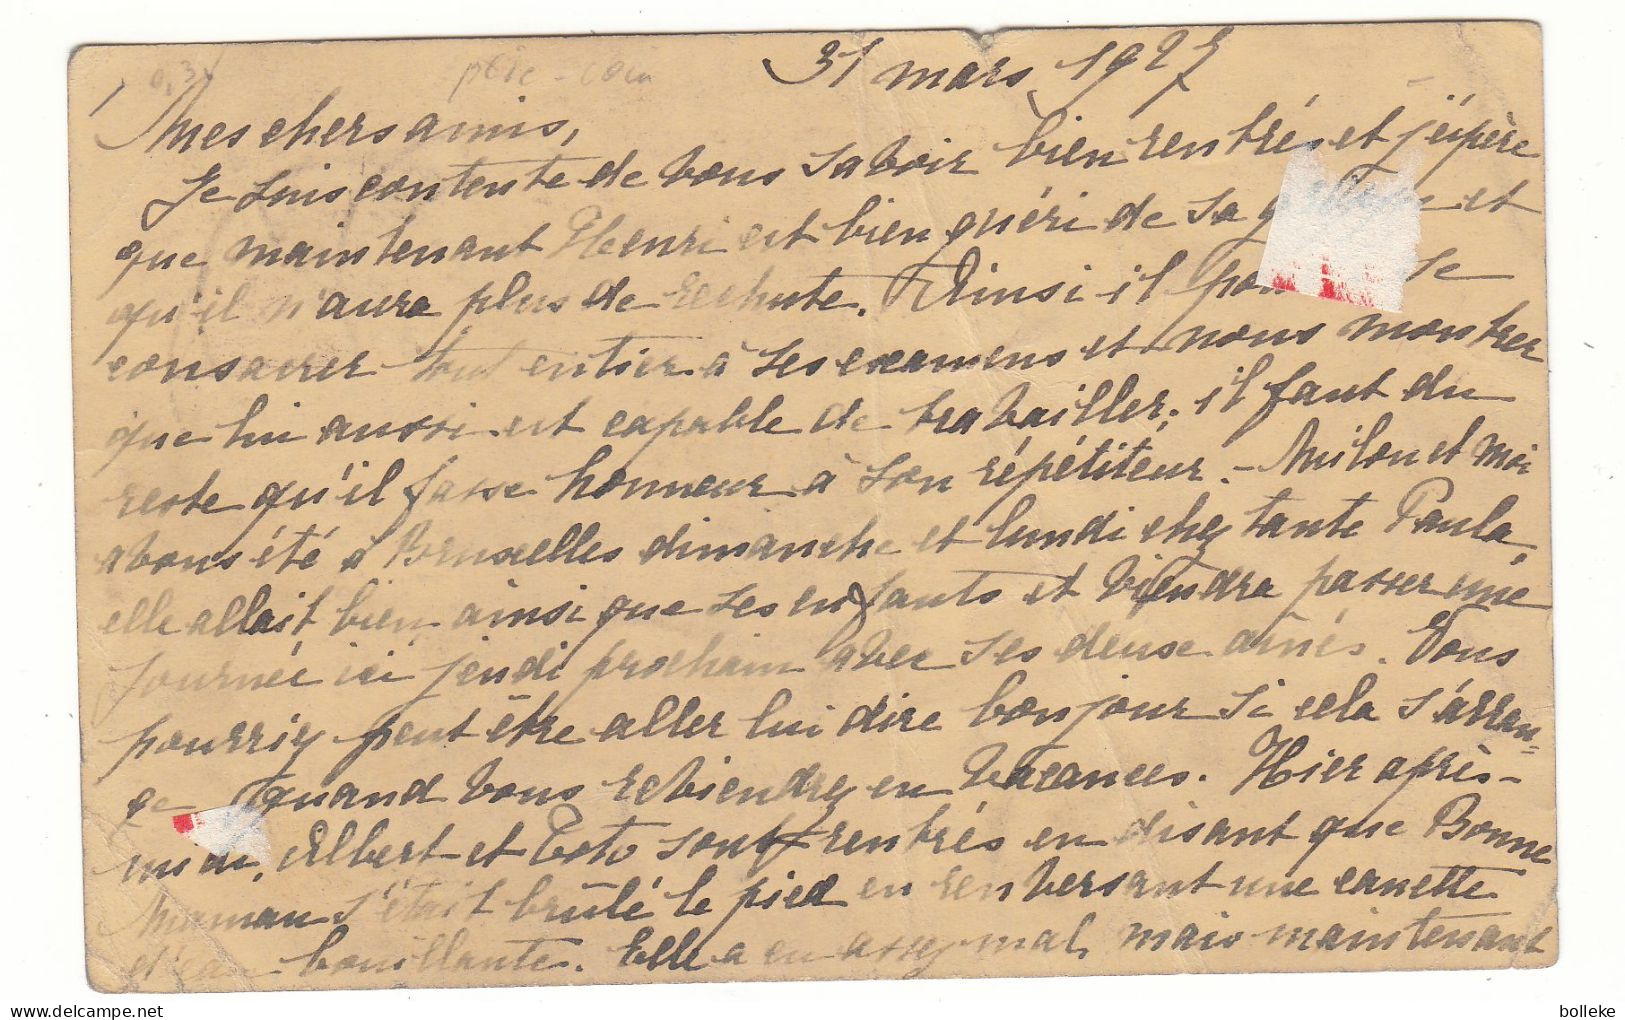 31 mars 1927
Mes chers amis,
Je suis contente de vous savoir bien rentrés et j'espère
que maintenant Henri est bien guéri de sa et
qu'il n'aura plus de rechute. Ainsi il se
consacrer tout entier à ses examens et nous montrer
que lui aussi est capable de travailler; il faut du
reste qu'il fasse honneur à son répétiteur. - Milou et moi
avons été à Bruxelles dimanche et lundi chez tante Paula,
elle allait bien ainsi que ses enfants et viendra passer une
journée ici jeudi prochain avec ses deux aînés. Vous
pourriez peut être aller lui dire bonjour si cela s'arran=
ge quand vous reviendrez en vacances. Hier après-
midi, Albert et Toto sont rentrés en disant que Bonne
Maman s'était brûlé le pied en renversant une canette
d'eau bouillante. Elle a eu assez mal, mais maintenant
bolleke